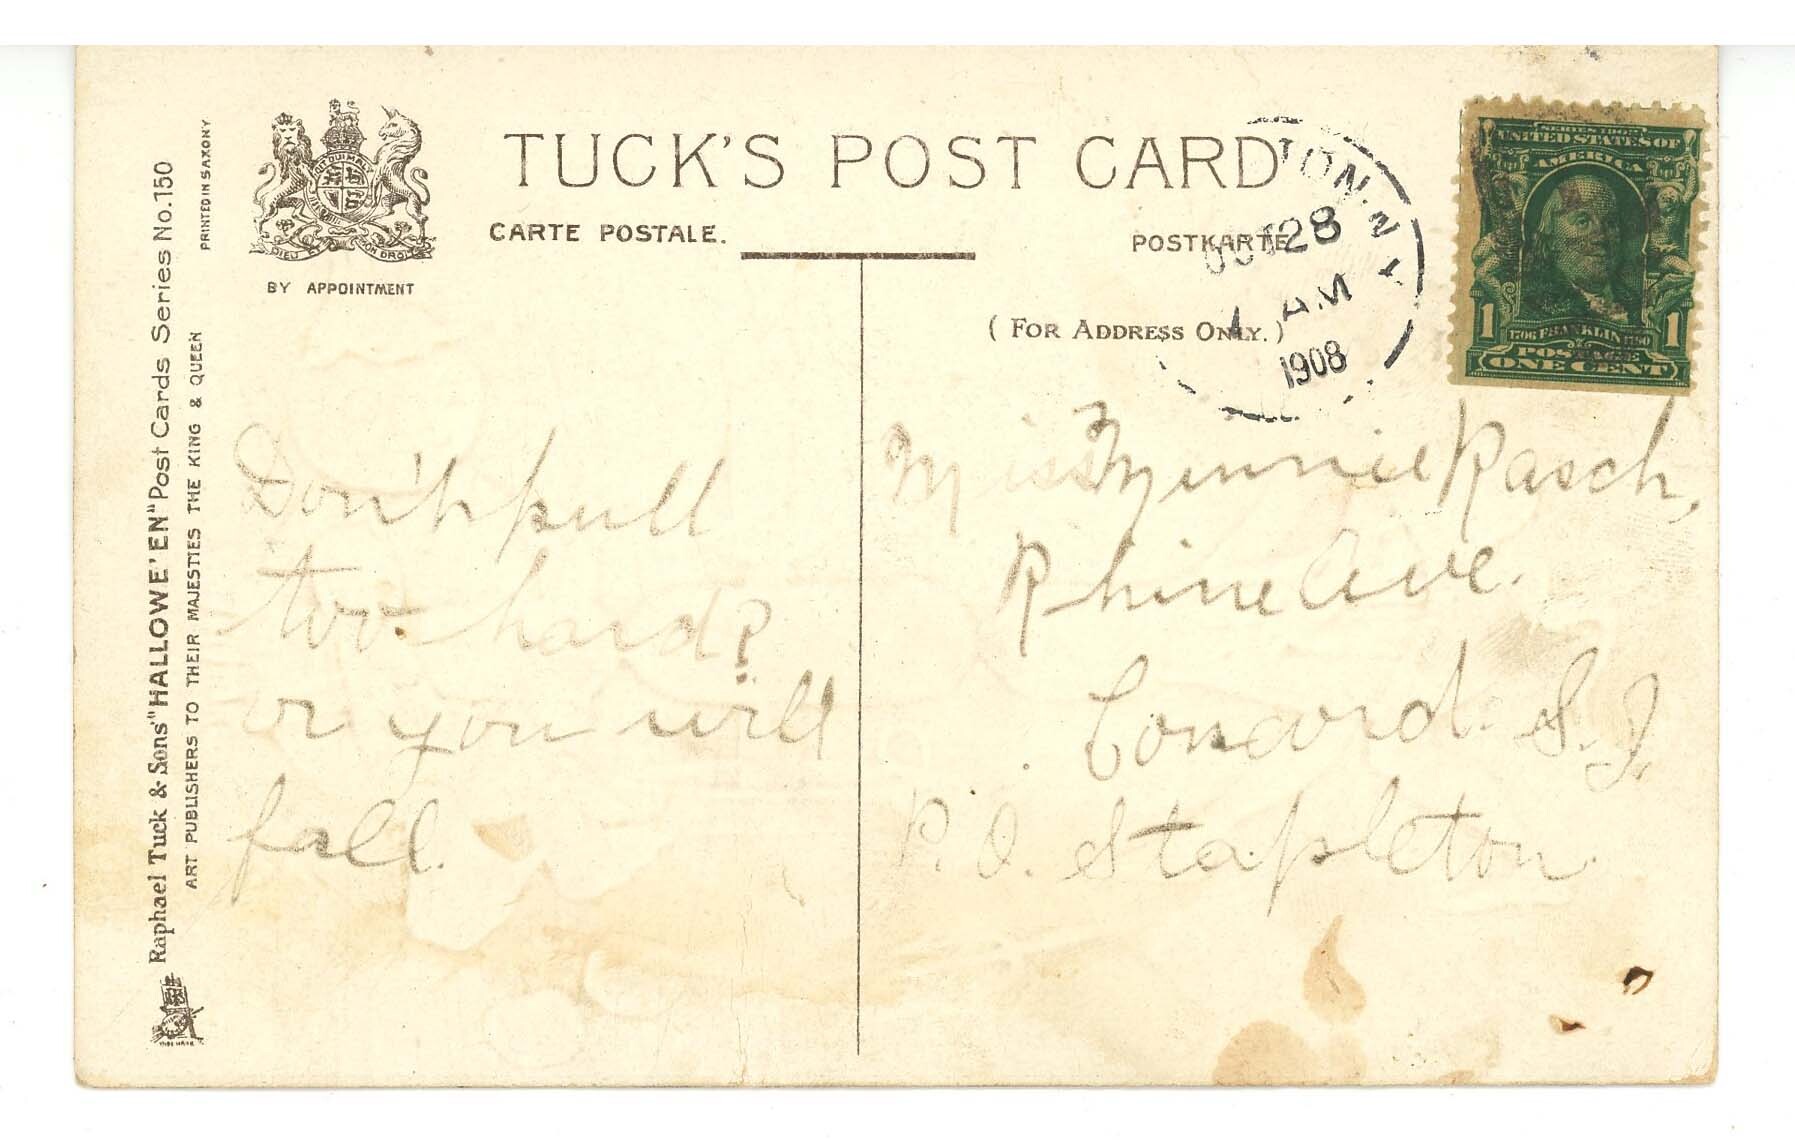 TUCK'S POST CARD
CARTE POSTALE.
POSTKARTE
(FOR ADDRESS ONLY.)
BY APPOINTMENT
DIEU ET MON DROIT
Raphael Tuck & Sons' "HALLOWE'EN" Post Cards Series No. 150
ART PUBLISHERS TO THEIR MAJESTIES THE KING & QUEEN
PRINTED IN SAXONY
TON. N Y
28
AM
1908
SERIES 1902
UNITED STATES OF
AMERICA
1706 FRANKLIN 1790
1 POSTAGE 1
ONE CENT
Don't pull
too hard?
or you will
fall.
Miss Minnie Rasch,
Rhine Ave.
Concord. S.I.
P.O. Stapleton.